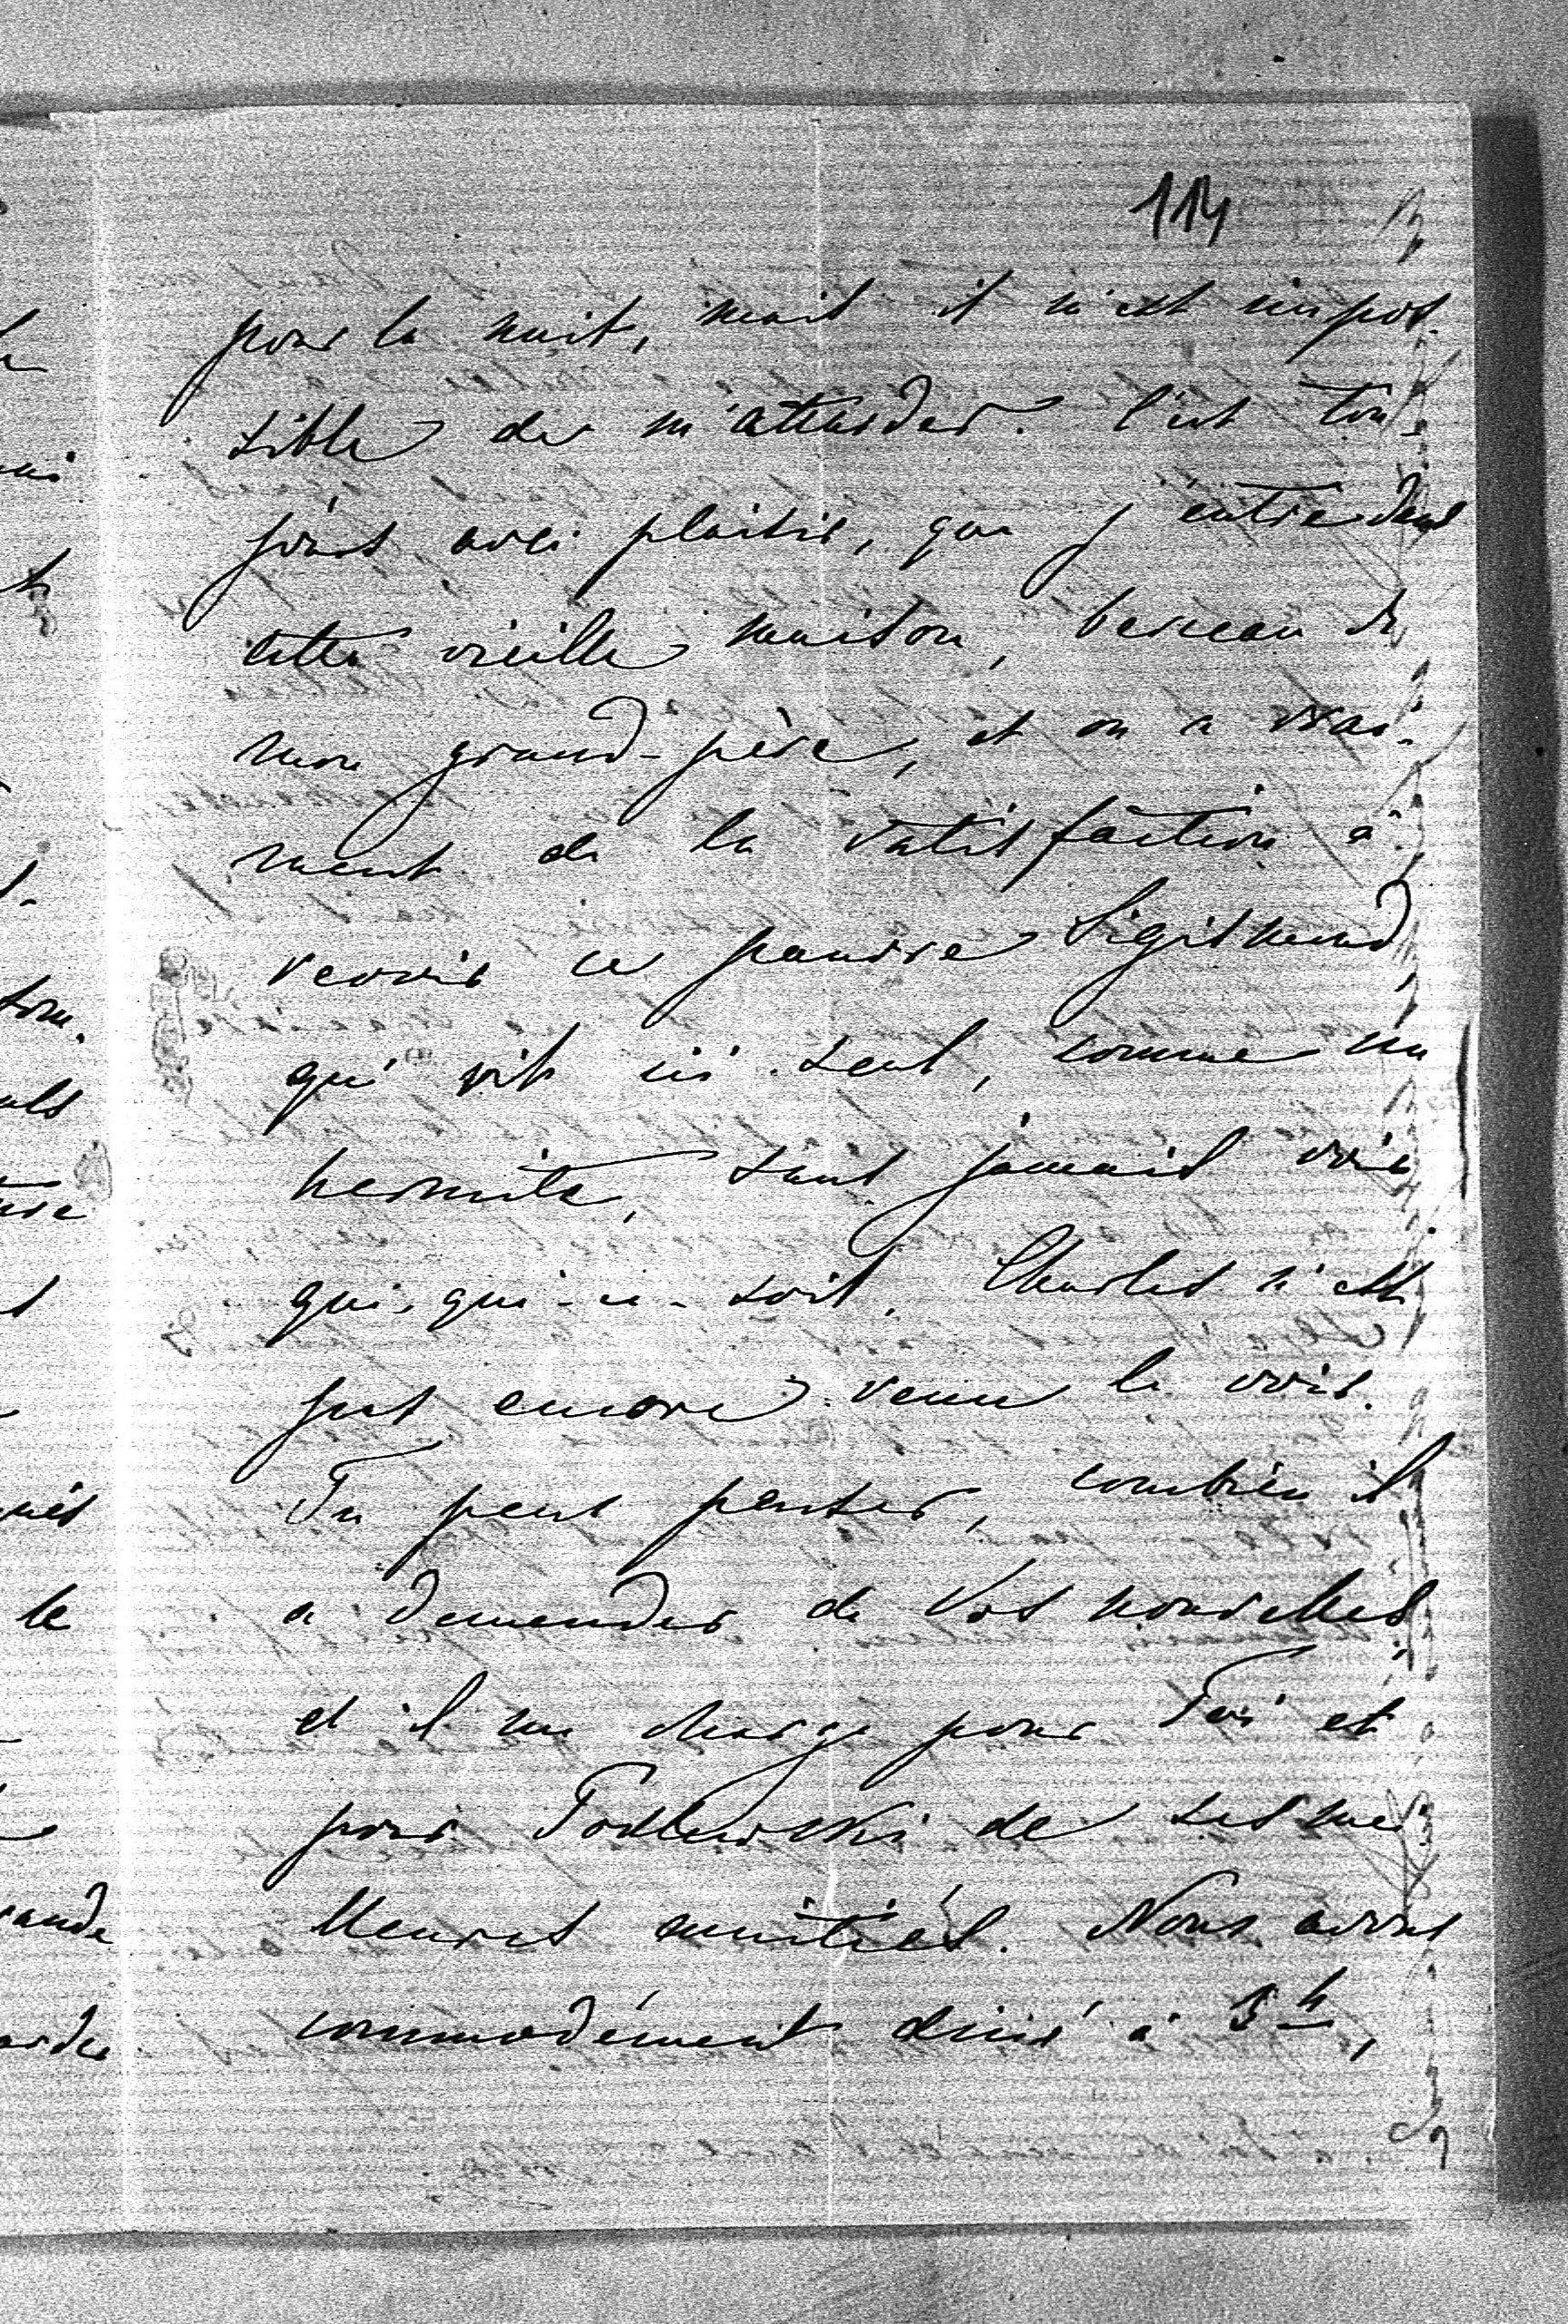 114
pour la nuit, mais il m'est impos-
sible de m'attarder. C'est tou-
jours avec plaisir, que j'entre dans
cette vieille maison, berceau de
mon grand-père, et on a vrai-
ment de la satisfaction à
revoir ce pauvre Sigismond
qui vit ici seul, comme un
hermite, sans jamais voir
qui-que-ce-soit. Charles n'est
pas encore venu le voir.
Tu peux penser, combien il
a demander de Vos nouvelles
et il me charge pour Toi et
pour Podlewski de ses mei-
lleures amitiés. Nous avons
commodément diné à 5 h,